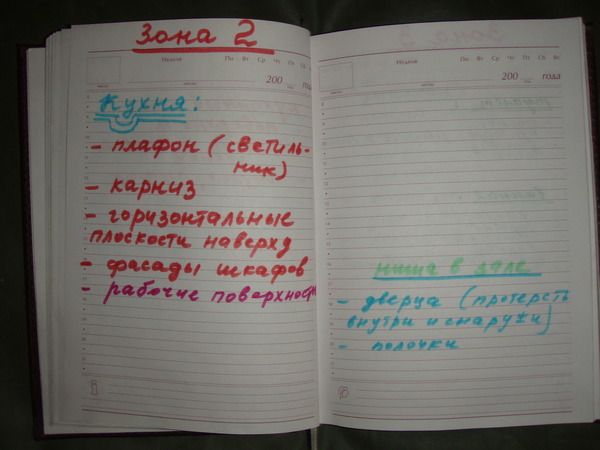 Зона 2
Неделя Пн Вт Ср Чт Пт Сб Вс
200 года
Кухня:
- плафон (светиль-
ник)
- карниз
- горизонтальные
плоскости наверху
- фасады шкафов
- рабочие поверхности
Неделя Пн Вт Ср Чт Пт Сб Вс
200 года
ниша в зале
- дверца (протереть
внутри и снаружи)
- полочки